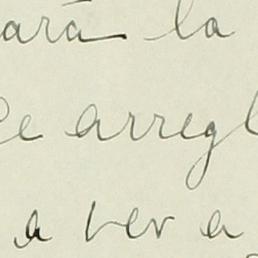 ará la
e arregl
a ver a